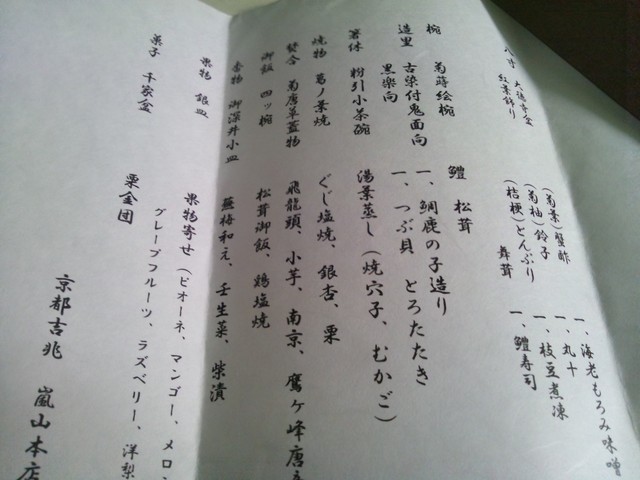 紅葉飾り
(菊葉)蟹酢
(菊柚)鈴子
(桔梗)とんぶり
舞茸
一、海老もろみ味噌
一、丸十
一、枝豆煮凍
一、鱧寿司
椀 菊蒔絵椀
鱧 松茸
造里 古染付鬼面向
黒楽向
一、鯛鹿の子造り
一、つぶ貝 とろたたき
箸休 粉引小茶碗
湯葉蒸し(焼穴子、むかご)
焼物 葛ノ葉焼
ぐじ塩焼、銀杏、栗
焚合 菊唐草蓋物
飛龍頭、小芋、南京、鷹ケ峰唐
御飯 四ッ椀
松茸御飯、鶏塩焼
香物 御深井小皿
蕪梅和え、壬生菜、柴漬
果物 銀皿
果物寄せ(ピオーネ、マンゴー、メロン
グレープフルーツ、ラズベリー、洋梨
菓子 千家盆
栗金団
京都吉兆 嵐山本店